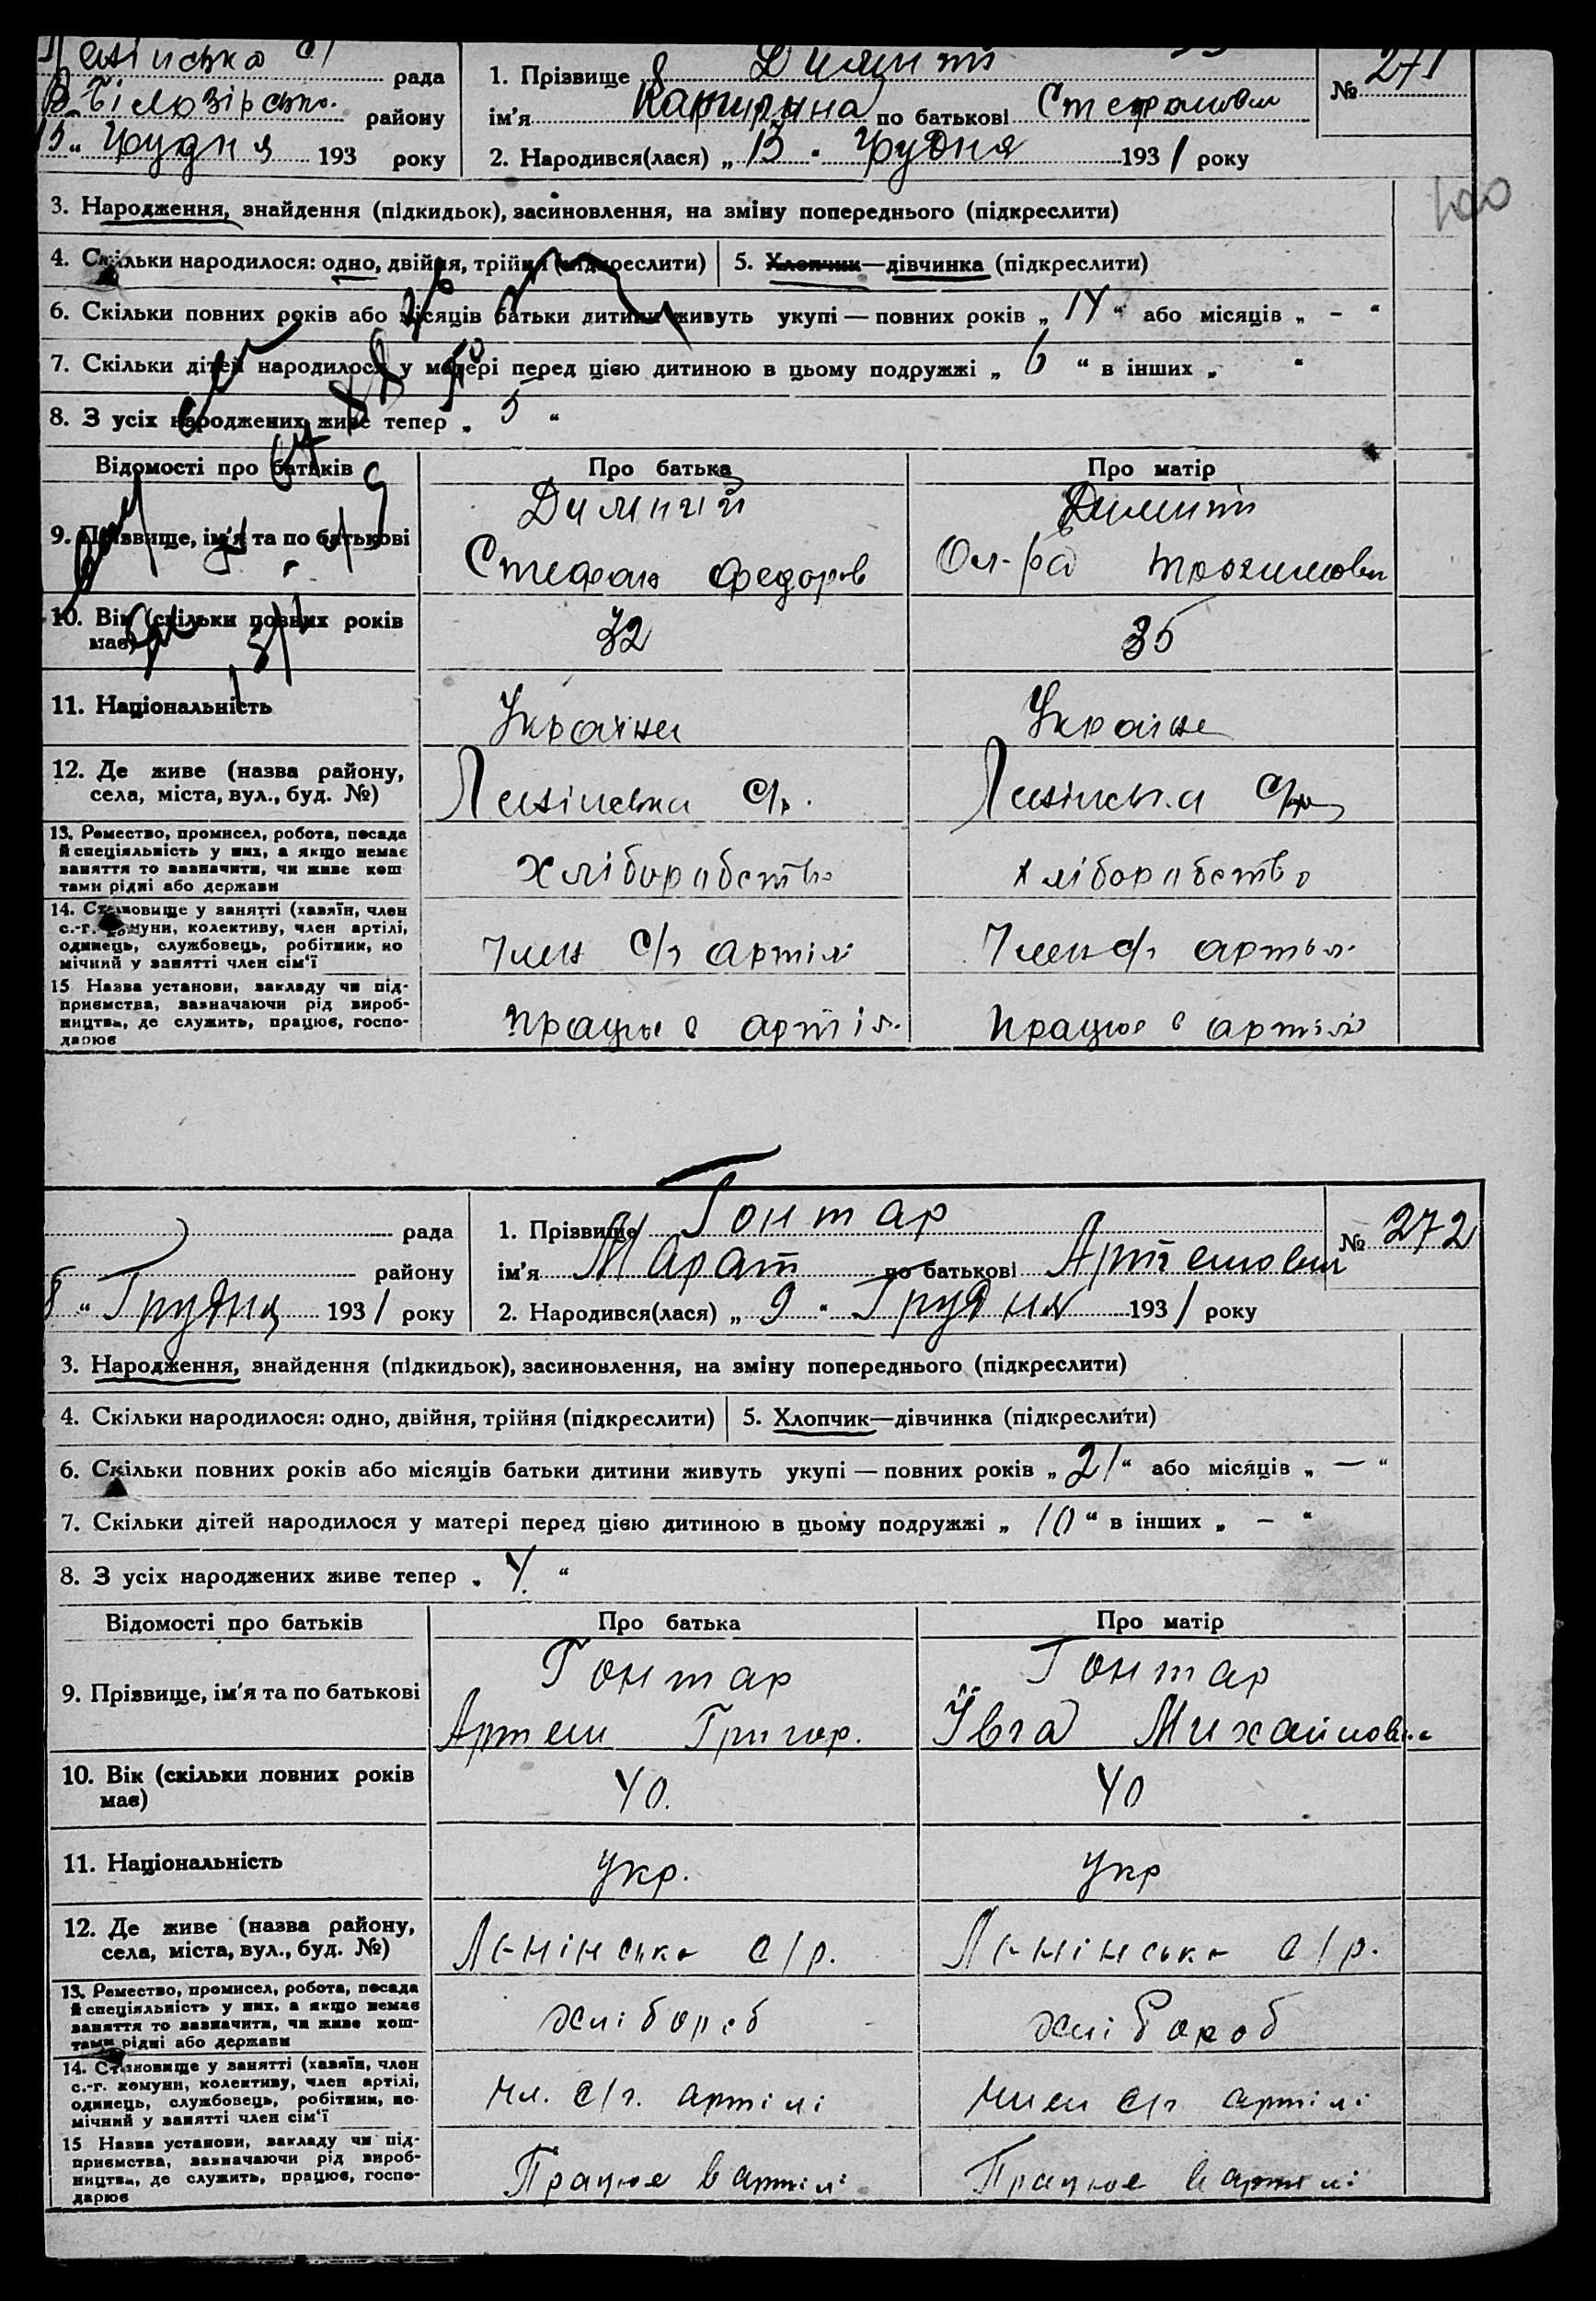 Ленінська С/ рада
В-Білозірськ. району
13 „ Грудня 193 року
1. Прізвище Димит
ім'я Катирина по батькові Стефанови
2. Народився(лася) „ 13 “ Грудня 1931 року
№ 271
100
3. Народження, знайдення (підкидьок), засиновлення, на зміну попереднього (підкреслити)
4. Скільки народилося: одно, двійня, трійня (підкреслити) 5. Хлопчик—дівчинка (підкреслити)
6. Скільки повних років або місяців батьки дитини живуть укупі — повних років „ 14 “ або місяців „ – “
7. Скільки дітей народилося у матері перед цією дитиною в цьому подружжі „ 6 “ в інших „ “
8. З усіх народжених живе тепер „ 5 “
Відомості про батьків Про батька Про матір
9. Прізвище, ім'я та по батькові
Стефан Федоров
Трохимовн
10. Вік (скільки повних років має) 32 35
11. Національність Україне Україне
12. Де живе (назва району, села, міста, вул., буд. №) Ленінська С/р. Ленінська С/р
13. Ремество, промисел, робота, посада
й спеціяльність у них, а якщо немає
заняття то зазначити, чи живе кош
тами рідні або держави
хліборобство хліборобство
14. Становище у занятті (хазяїн, член
с.-г. комуни, колективу, член артілі,
одинець, службовець, робітник, по
мічний у занятті член сім'ї
Член С/г артілі Член с/г артіл.
15 Назва установи, закладу чи під-
приємства, зазначаючи рід вироб-
ництва, де служить, працює, госпо-
дарює
працює в артіл. працює в артілі
рада
району
8 „ Грудня 1931 року
1. Прізвище Гонтар
ім'я Марат по батькові Артемови
2. Народився(лася) „ 9 “ Грудня 1931 року
№ 272
3. Народження, знайдення (підкидьок), засиновлення, на зміну попереднього (підкреслити)
4. Скільки народилося: одно, двійня, трійня (підкреслити) 5. Хлопчик—дівчинка (підкреслити)
6. Скільки повних років або місяців батьки дитини живуть укупі — повних років „ 21 “ або місяців „ — “
7. Скільки дітей народилося у матері перед цією дитиною в цьому подружжі „ 10 “ в інших „ – “
8. З усіх народжених живе тепер „ 4. “
Відомості про батьків Про батька Про матір
Гонтар Гонтар
9. Прізвище, ім'я та по батькові
Артем Григор. Ївга Михайловна
10. Вік (скільки повних років має) 40. 40
11. Національність укр. укр
12. Де живе (назва району, села, міста, вул., буд. №) Ленінська с/р. Ленінська с/р.
13. Ремество, промисел, робота, посада
й спеціяльність у них, а якщо немає
заняття то зазначити, чи живе кош-
тами рідні або держави
хлібороб хлібороб
14. Становище у занятті (хазяїн, член
с.-г. комуни, колективу, член артілі,
одинець, службовець, робітник, по-
мічний у занятті член сім'ї
Чл. с/г. артілі Член с/г артілі
15 Назва установи, закладу чи під-
приємства, зазначаючи рід вироб-
ництва, де служить, працює, госпо-
дарює
Працює в артілі Працює в артілі